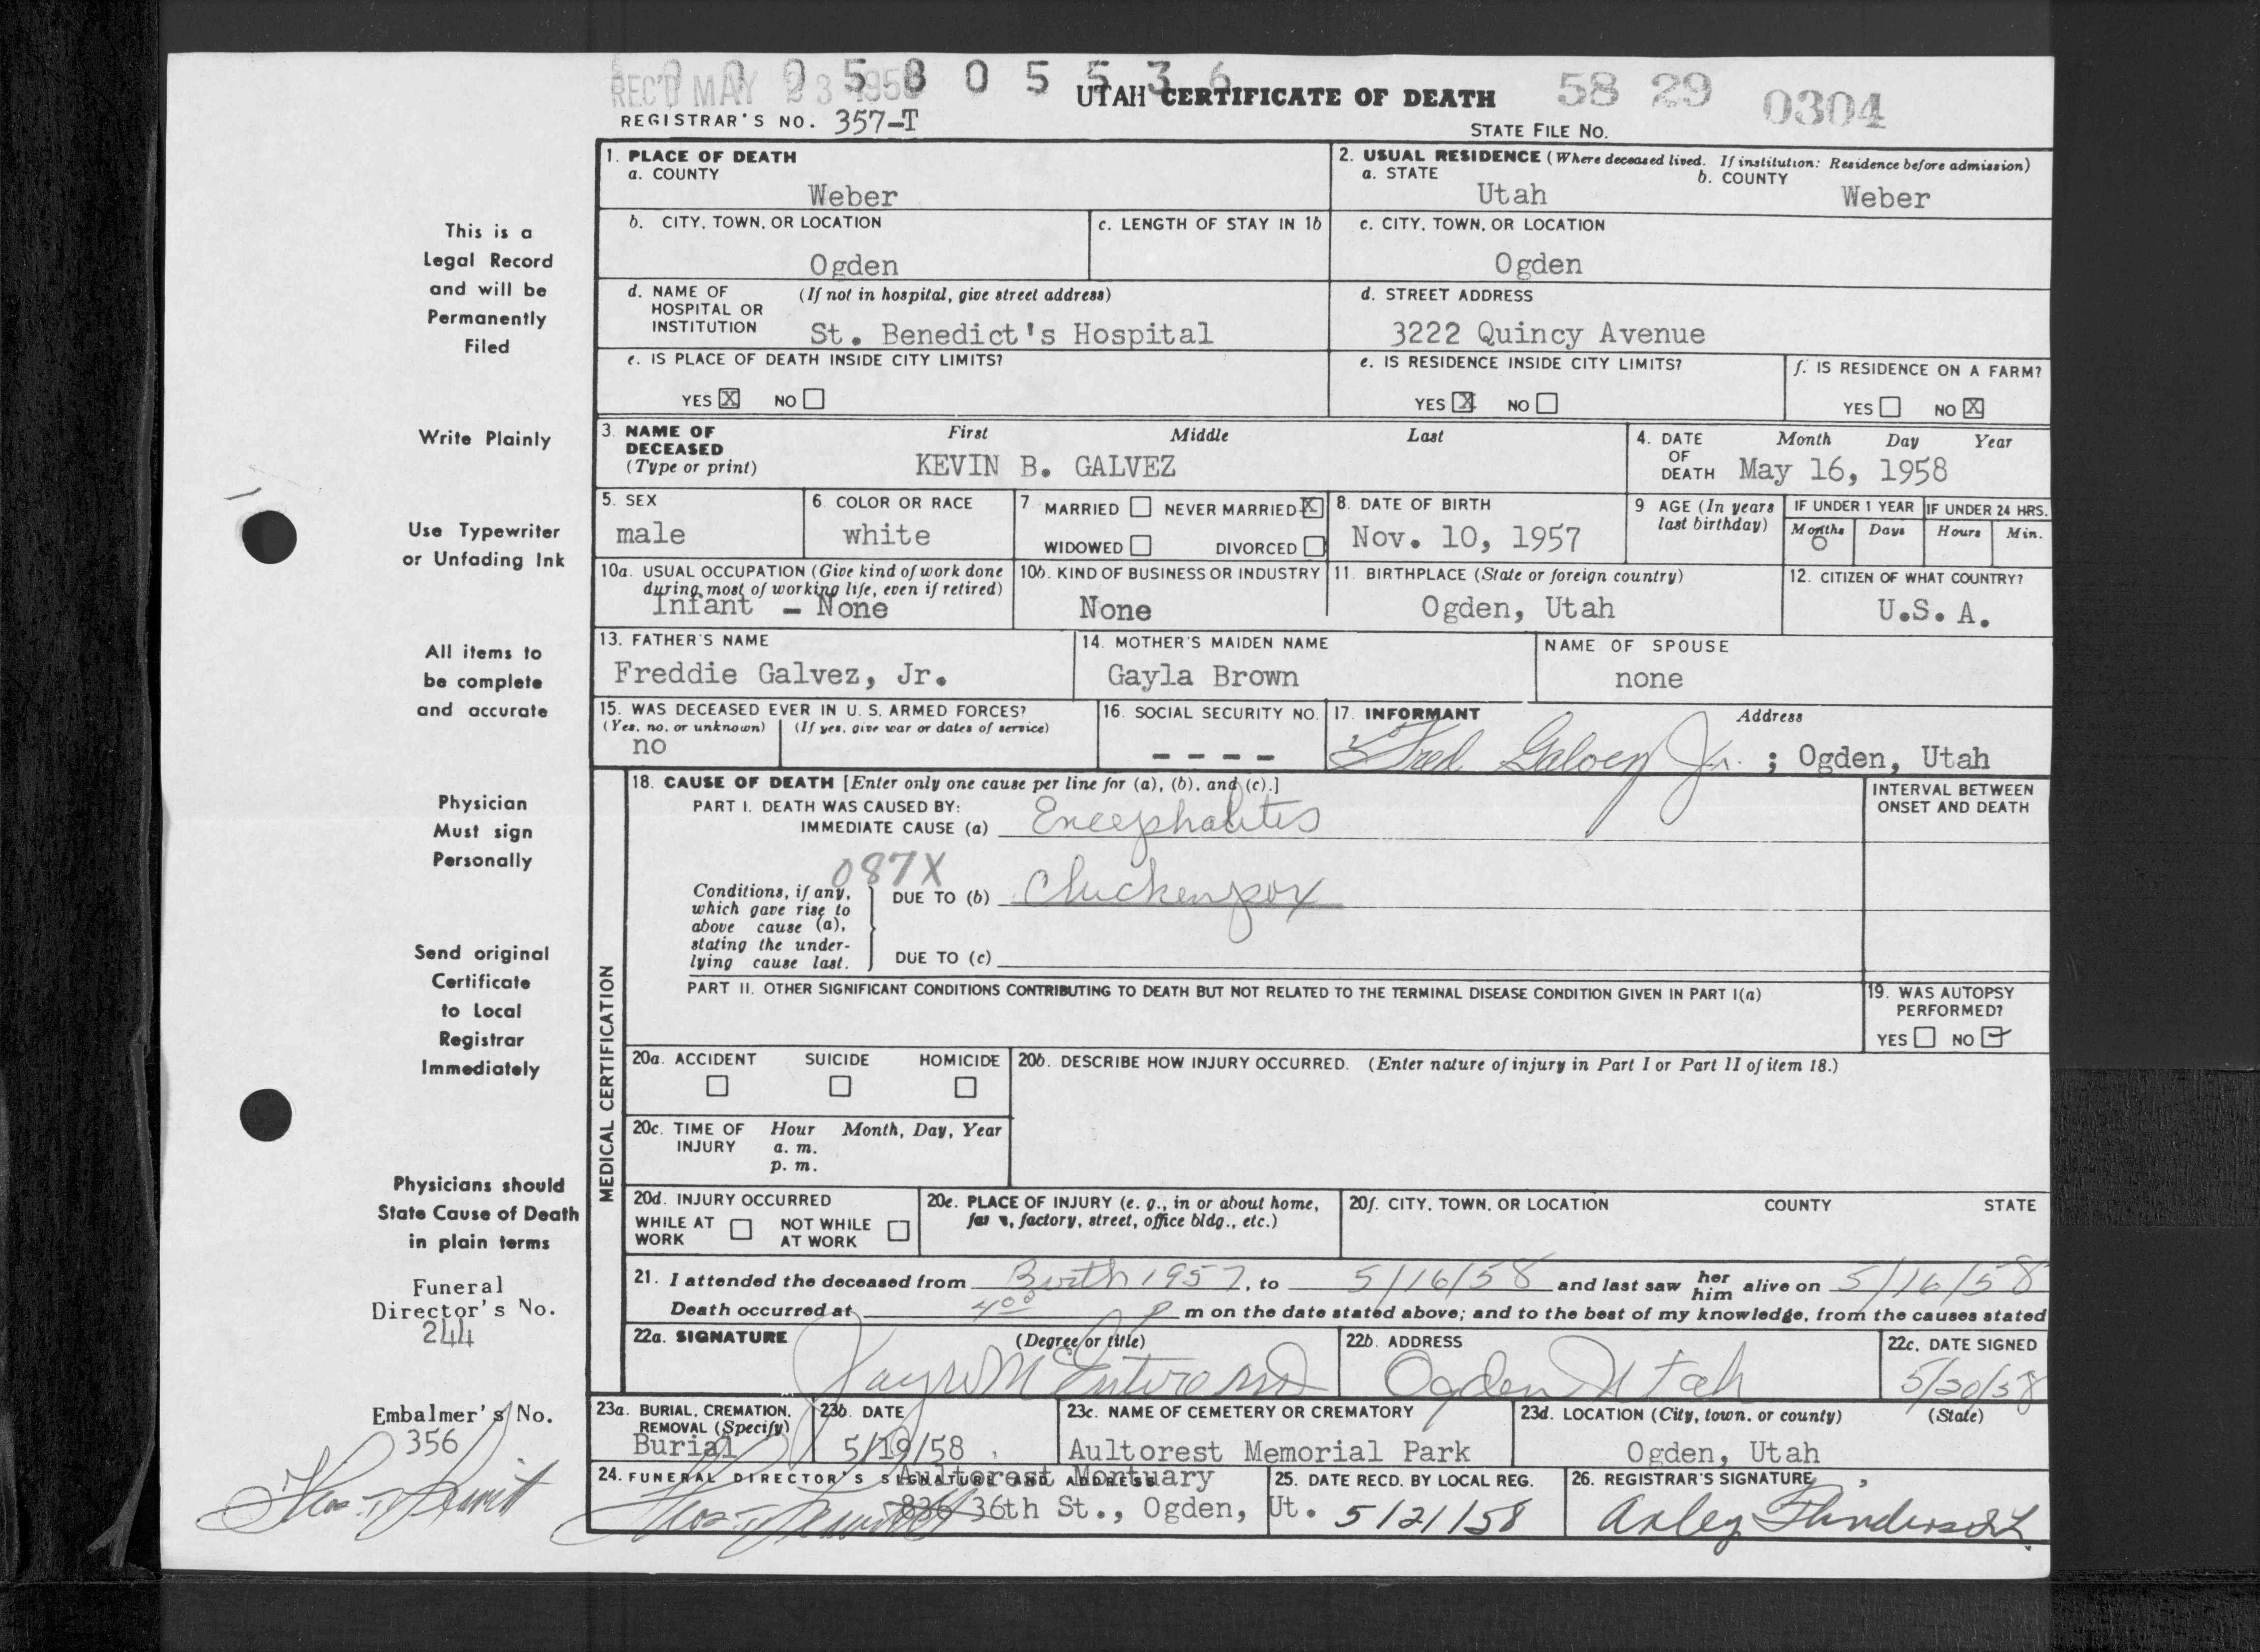 REC'D MAY 23 1958
5 8 0 5 5 3 6
UTAH CERTIFICATE OF DEATH
58 29 0304
REGISTRAR'S NO. 357-T
STATE FILE NO.
This is a
Legal Record
and will be
Permanently
Filed
Write Plainly
Use Typewriter
or Unfading Ink
All items to
be complete
and accurate
Physician
Must sign
Personally
Send original
Certificate
to Local
Registrar
Immediately
Physicians should
State Cause of Death
in plain terms
Funeral
Director's No.
244
Embalmer's No.
356
1. PLACE OF DEATH
a. COUNTY
Weber
2. USUAL RESIDENCE (Where deceased lived. If institution: Residence before admission)
a. STATE
Utah
b. COUNTY
Weber
b. CITY, TOWN, OR LOCATION
Ogden
c. LENGTH OF STAY IN 1b
c. CITY, TOWN, OR LOCATION
Ogden
d. NAME OF (If not in hospital, give street address)
HOSPITAL OR
INSTITUTION St. Benedict's Hospital
d. STREET ADDRESS
3222 Quincy Avenue
e. IS PLACE OF DEATH INSIDE CITY LIMITS?
YES X NO
e. IS RESIDENCE INSIDE CITY LIMITS?
YES X NO
f. IS RESIDENCE ON A FARM?
YES NO X
3. NAME OF First Middle Last
DECEASED
(Type or print) KEVIN B. GALVEZ
4. DATE Month Day Year
OF
DEATH May 16, 1958
5. SEX
male
6. COLOR OR RACE
white
7. MARRIED NEVER MARRIED X
WIDOWED DIVORCED
8. DATE OF BIRTH
Nov. 10, 1957
9 AGE (In years
last birthday)
IF UNDER 1 YEAR
Months Days
6
IF UNDER 24 HRS.
Hours Min.
10a. USUAL OCCUPATION (Give kind of work done
during most of working life, even if retired)
Infant - None
10b. KIND OF BUSINESS OR INDUSTRY
None
11. BIRTHPLACE (State or foreign country)
Ogden, Utah
12. CITIZEN OF WHAT COUNTRY?
U.S.A.
13. FATHER'S NAME
Freddie Galvez, Jr.
14. MOTHER'S MAIDEN NAME
Gayla Brown
NAME OF SPOUSE
none
15. WAS DECEASED EVER IN U. S. ARMED FORCES?
(Yes, no, or unknown) (If yes, give war or dates of service)
no
16. SOCIAL SECURITY NO.
- - - -
17. INFORMANT Address
Fred Galvez Jr. ; Ogden, Utah
MEDICAL CERTIFICATION
18. CAUSE OF DEATH [Enter only one cause per line for (a), (b), and (c).]
PART I. DEATH WAS CAUSED BY:
IMMEDIATE CAUSE (a) Encephalitis
INTERVAL BETWEEN
ONSET AND DEATH
087X
Conditions, if any,
which gave rise to
above cause (a),
stating the under-
lying cause last.
DUE TO (b) Chickenpox
DUE TO (c)
PART II. OTHER SIGNIFICANT CONDITIONS CONTRIBUTING TO DEATH BUT NOT RELATED TO THE TERMINAL DISEASE CONDITION GIVEN IN PART I(a)
19. WAS AUTOPSY
PERFORMED?
YES NO ✓
20a. ACCIDENT SUICIDE HOMICIDE
20b. DESCRIBE HOW INJURY OCCURRED. (Enter nature of injury in Part I or Part II of item 18.)
20c. TIME OF Hour Month, Day, Year
INJURY a. m.
p. m.
20d. INJURY OCCURRED
WHILE AT NOT WHILE
WORK AT WORK
20e. PLACE OF INJURY (e. g., in or about home,
farm, factory, street, office bldg., etc.)
20f. CITY, TOWN, OR LOCATION COUNTY STATE
21. I attended the deceased from Birth 1957, to 5/16/58 and last saw her him alive on 5/16/58
Death occurred at 4 00 p m on the date stated above; and to the best of my knowledge, from the causes stated
22a. SIGNATURE (Degree or title)
22b. ADDRESS
Ogden Utah
22c. DATE SIGNED
5/20/58
23a. BURIAL, CREMATION,
REMOVAL (Specify)
Burial
23b. DATE
5/19/58
23c. NAME OF CEMETERY OR CREMATORY
Aultorest Memorial Park
23d. LOCATION (City, town, or county) (State)
Ogden, Utah
24. FUNERAL DIRECTOR'S SIGNATURE AND ADDRESS
Aultorest Mortuary
836 36th St., Ogden, Ut.
25. DATE RECD. BY LOCAL REG.
5/21/58
26. REGISTRAR'S SIGNATURE
Arley Flinders